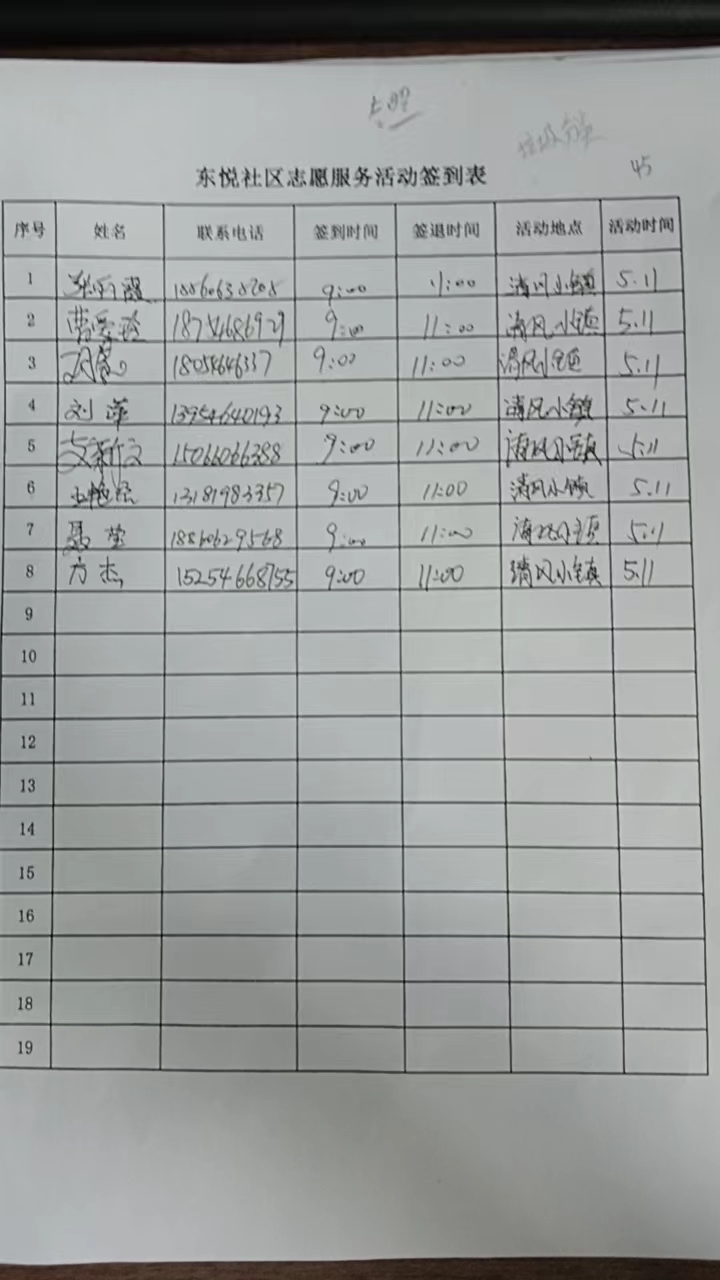 45
东悦社区志愿服务活动签到表
序号 姓名 联系电话 签到时间 签退时间 活动地点 活动时间
1 18860638208 9:00 11:00 清风小镇 5.11
2 曹爱玲 18754686929 9:00 11:00 清风小镇 5.11
3 9:00 11:00 清风小镇 5.11
4 刘萍 13954640193 9:00 11:00 清风小镇 5.11
5 15066066388 9:00 11:00 清风小镇 5.11
6 13181983357 9:00 11:00 清风小镇 5.11
7 聂莹 18860629568 9:00 11:00 清风小镇 5.11
8 方杰 15254668755 9:00 11:00 清风小镇 5.11
9
10
11
12
13
14
15
16
17
18
19